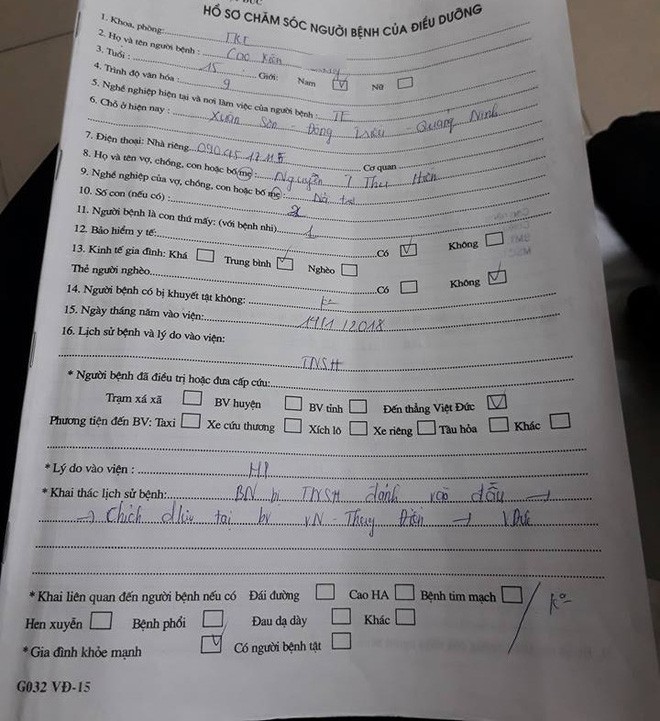 ĐỨC
HỒ SƠ CHĂM SÓC NGƯỜI BỆNH CỦA ĐIỀU DƯỠNG
1. Khoa, phòng:
2. Họ và tên người bệnh: Cao Xuân
3. Tuổi: 15 Giới: Nam ☑ Nữ ☐
4. Trình độ văn hóa: 9
5. Nghề nghiệp hiện tại và nơi làm việc của người bệnh: TE
6. Chỗ ở hiện nay: Xuân Sơn - Đông Triều - Quảng Ninh
7. Điện thoại: Nhà riêng Cơ quan
8. Họ và tên vợ, chồng, con hoặc bố mẹ: Nguyễn T Thu Hiền
9. Nghề nghiệp của vợ, chồng, con hoặc bố mẹ:
10. Số con (nếu có): 2
11. Người bệnh là con thứ mấy: (với bệnh nhi) 1
12. Bảo hiểm y tế: Có ☑ Không ☐
13. Kinh tế gia đình: Khá ☐ Trung bình ☑ Nghèo ☐
Thẻ người nghèo Có ☐ Không ☑
14. Người bệnh có bị khuyết tật không: K°
15. Ngày tháng năm vào viện:
16. Lịch sử bệnh và lý do vào viện:
TNSH
* Người bệnh đã điều trị hoặc đưa cấp cứu:
Trạm xá xã ☐ BV huyện ☐ BV tỉnh ☐ Đến thẳng Việt Đức ☑
Phương tiện đến BV: Taxi ☐ Xe cứu thương ☐ Xích lô ☐ Xe riêng ☐ Tàu hỏa ☐ Khác ☐
* Lý do vào viện:
* Khai thác lịch sử bệnh: BN bị TNSH đánh vào đầu →
→ bv VN - Thụy Điển → VĐức
* Khai liên quan đến người bệnh nếu có Đái đường ☐ Cao HA ☐ Bệnh tim mạch ☐ K°
Hen xuyễn ☐ Bệnh phổi ☐ Đau dạ dày ☐ Khác ☐
* Gia đình khỏe mạnh ☑ Có người bệnh tật ☐
G032 VĐ-15